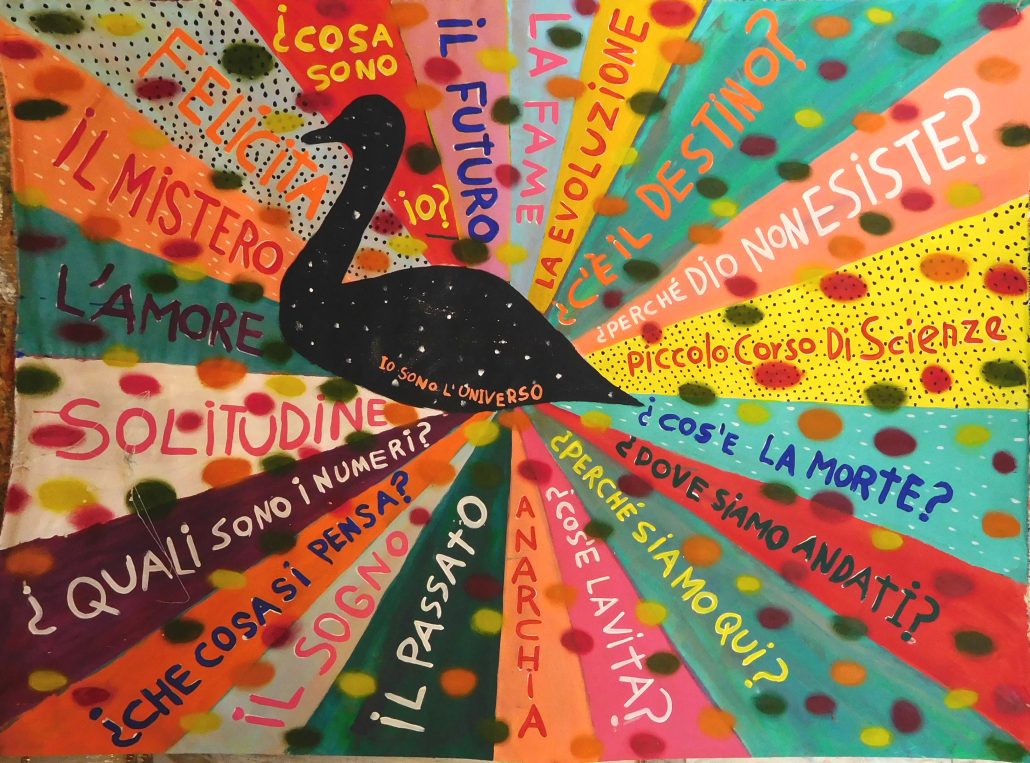 ¿COSA
SONO
iO?
iL FUTURO
LA FAME
LA EVOLUZIONE
¿C'È iL DESTINO?
¿PERCHÉ DIO NON ESISTE?
PiCCOLO CORSO Di SCiENZE
¿COS'E LA MORTE?
¿DOVE SiAMO ANDATi?
¿PERCHÉ SiAMO QUi?
¿COS'E LA ViTA?
ANARCHIA
iL PASSATO
iL SOGNO
¿CHE COSA Si PENSA?
¿QUALi SONO i NUMERi?
SOLiTUDiNE
L'AMORE
iL MiSTERO
FELiCiTA
IO SONO L'UNIVERSO